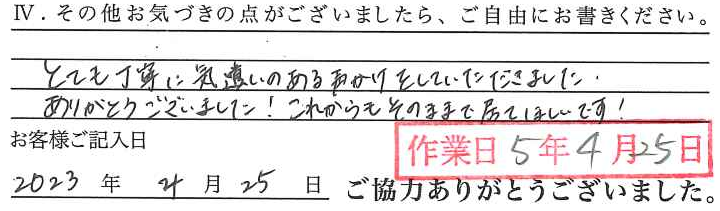 Ⅳ．その他お気づきの点がございましたら、ご自由にお書きください。
とても丁寧に気遣いのある声かけをしていただきました.
ありがとうございました！これからもそのままで居てほしいです！
お客様ご記入日
作業日 5年4月25日
2023 年 4 月 25 日 ご協力ありがとうございました。